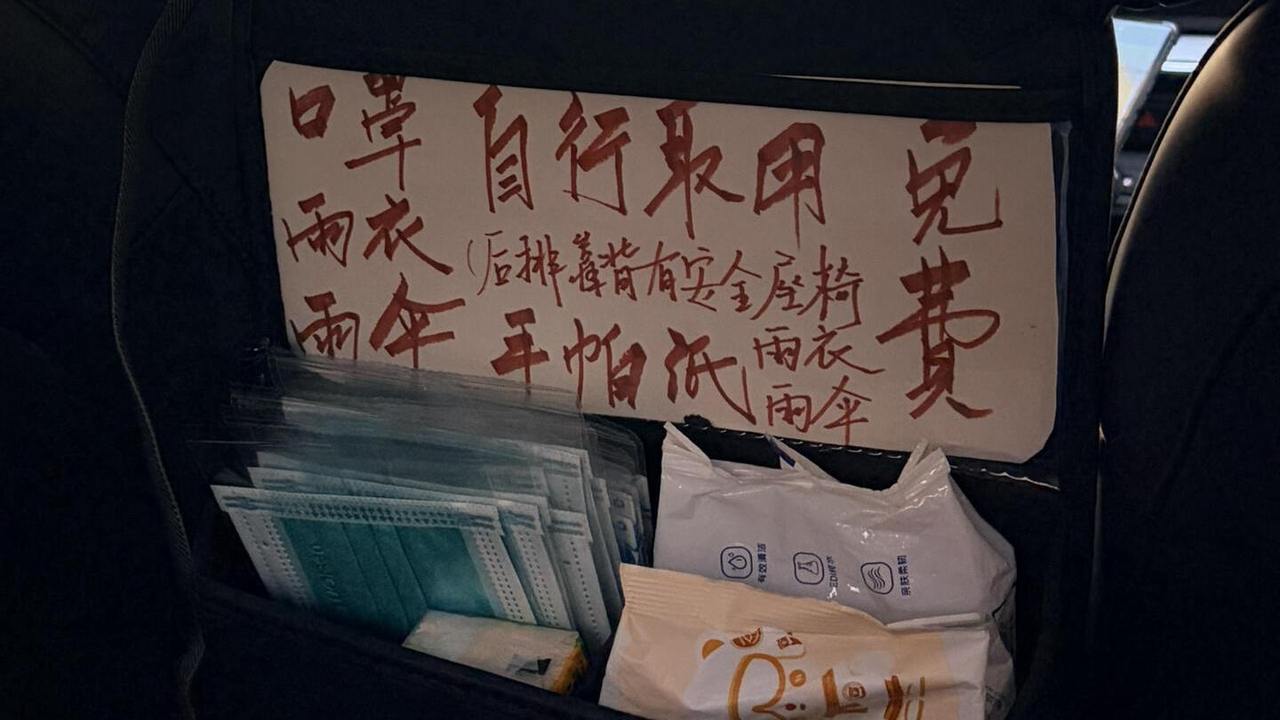 口罩 自行取用
雨衣 (后排靠背有安全座椅
雨伞 手帕纸 雨衣
雨伞
免费
有效清洁
EDI纯水
亲肤柔韧